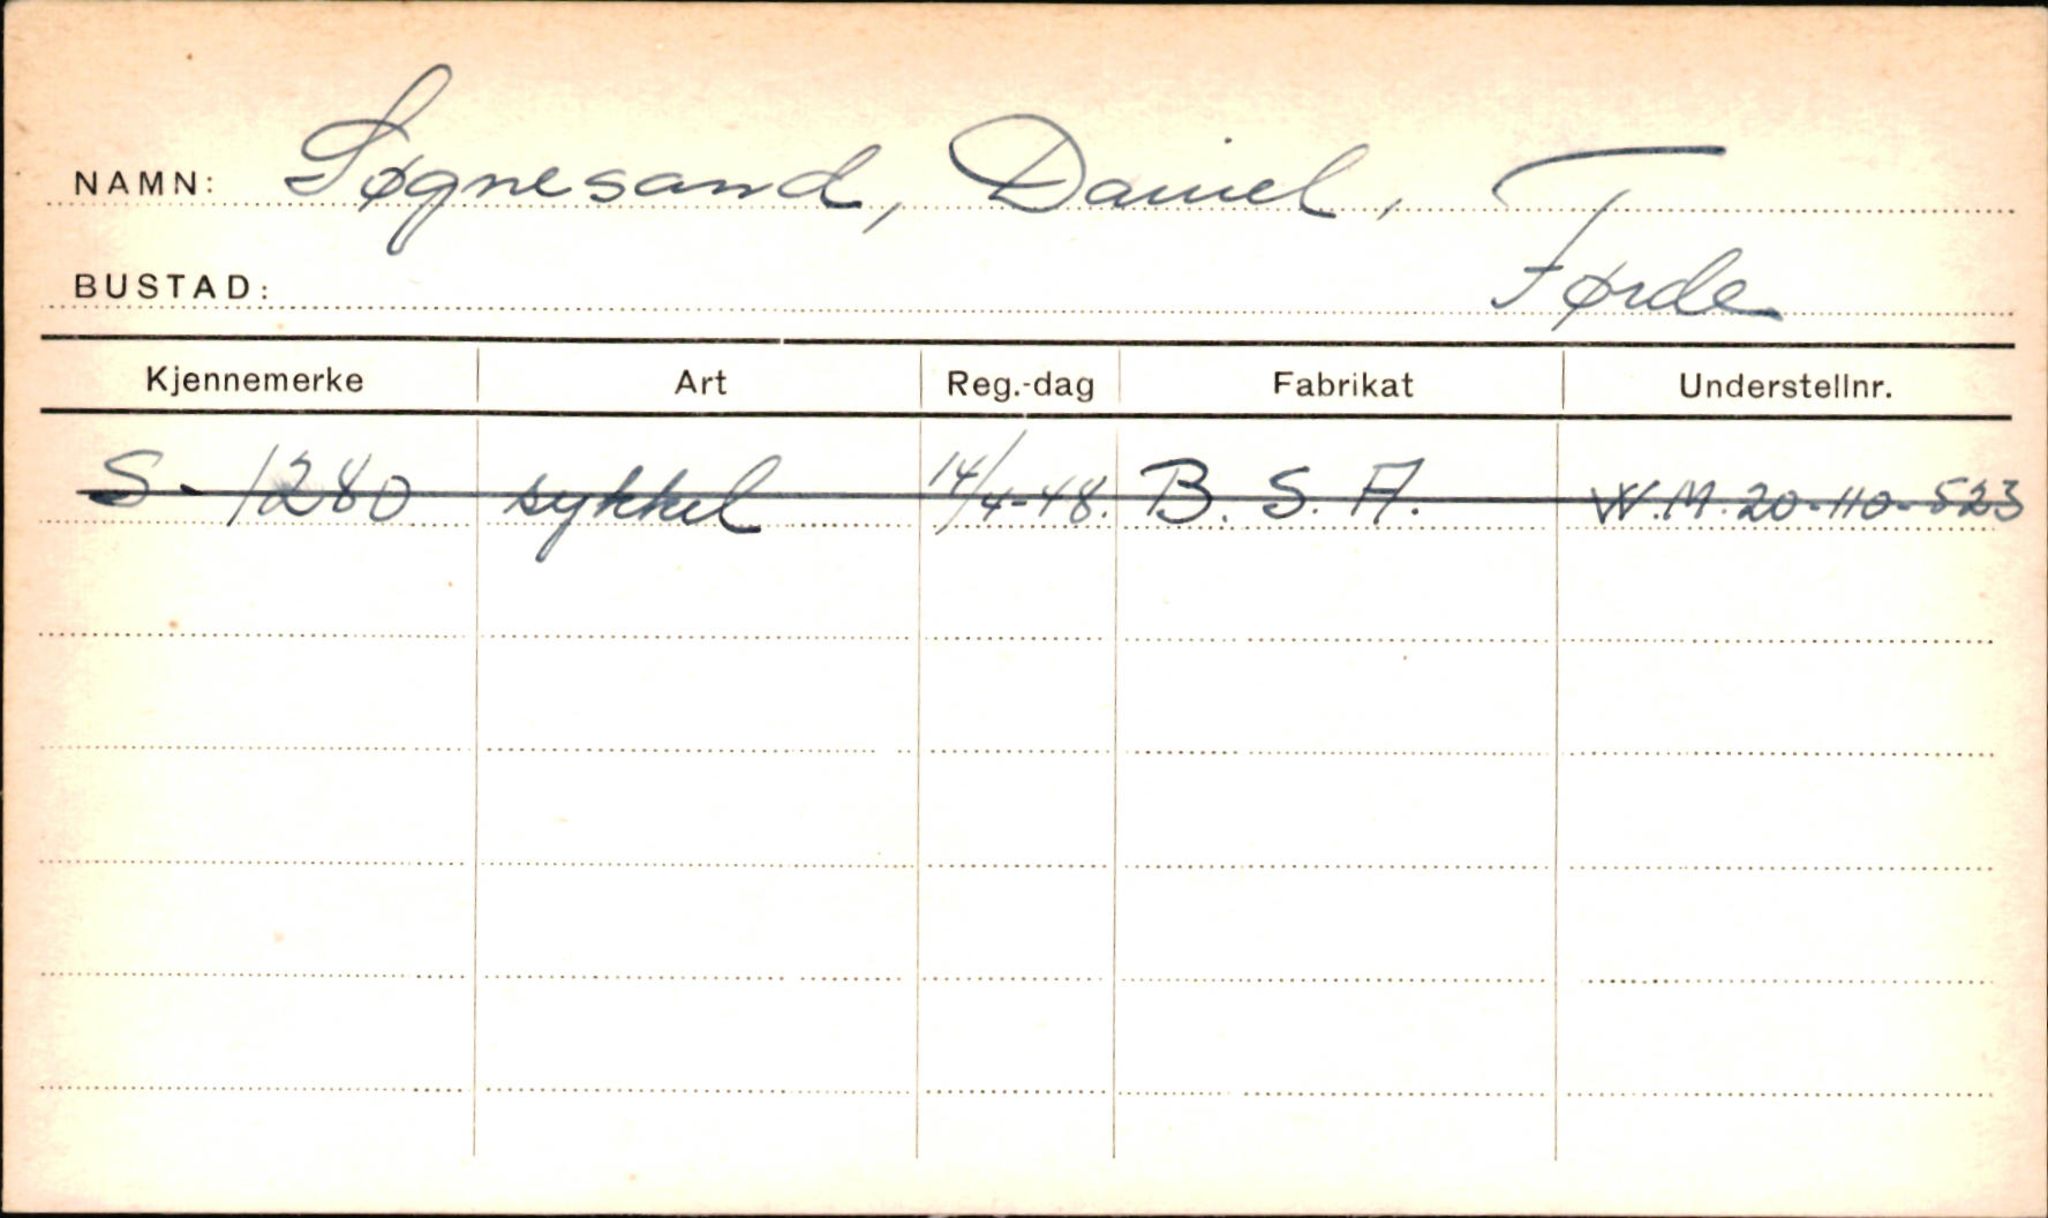 NAMN: Søgnesand, Daniel,
BUSTAD: Førde
Kjennemerke Art Reg.-dag Fabrikat Understellnr.
S-1280 sykkel 14/4-48. B.S.A. W.M.20-110-523